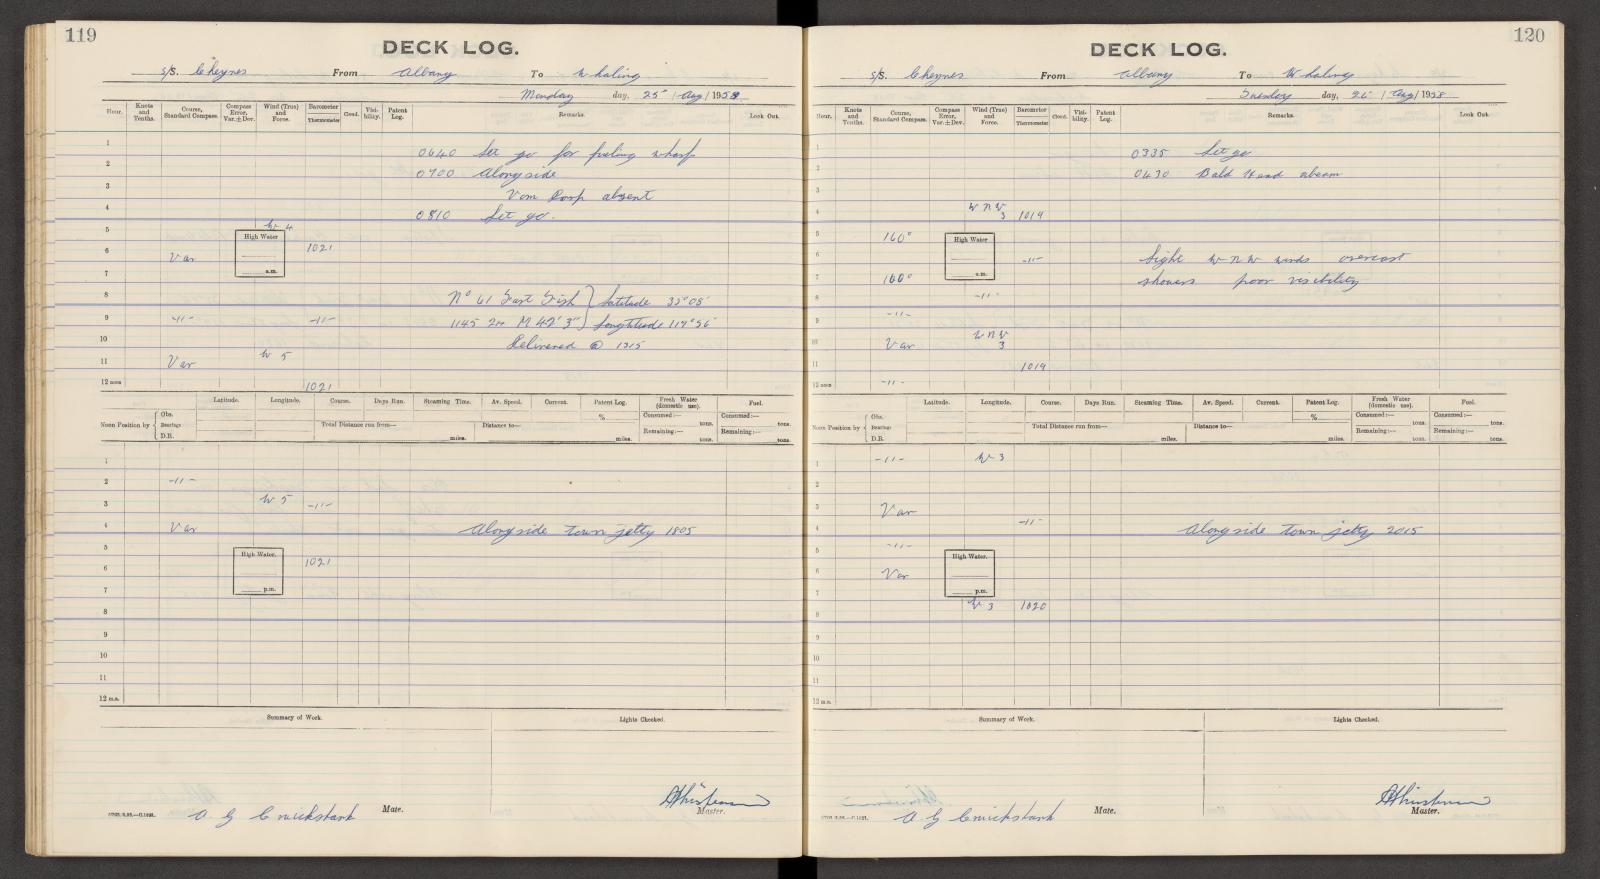 119
DECK LOG.
S/S. Cheynes From Albany To Whaling
Monday day, 25 / Aug / 1958
Hour. Knots and Tenths. Course, Standard Compass. Compass Error, Var. ± Dev. Wind (True) and Force. Barometer Thermometer Cloud. Visibility. Patent Log. Remarks. Look Out.
1 0640 Let go for fueling wharf
2 0700 Alongside
3 absent
4 0810 Let go.
5 W 4
High Water
6 Var 1021
a.m.
7
8 No 61 Fast Fish } Latitude 35°08'
9 -11- -11- 1145 M 42' 3" } Longtitude
10 Delivered @ 1315
11 Var W 5
12 noon 1021
Latitude. Longitude. Course. Days Run. Steaming Time. Av. Speed. Current. Patent Log. Fresh Water (domestic use). Fuel.
Noon Position by { Obs. Bearings D.R. % Consumed:— tons. Consumed:— tons.
Total Distance run from— miles. Distance to— miles. Remaining:— tons. Remaining:— tons.
1
2 -11-
3 W 5 -11-
4 Var Alongside town jetty 1805
5
High Water.
6 1021
7 p.m.
8
9
10
11
12 m.n.
Summary of Work. Lights Checked.
A G Cruickshank Mate. Master.
120
DECK LOG.
S/S. Cheynes From Albany To Whaling
Tuesday day, 26 / Aug / 1958
Hour. Knots and Tenths. Course, Standard Compass. Compass Error, Var. ± Dev. Wind (True) and Force. Barometer Thermometer Cloud. Visibility. Patent Log. Remarks. Look Out.
1 0335 Let go
2 0430 Bald Head abeam
3
4 W N W 3 1019
5 160°
High Water
6 -11- Light W N W winds overcast
7 160° a.m. showers poor visibility
8 -11-
9 -11-
10 Var W N W 3
11 1019
12 noon -11-
Latitude. Longitude. Course. Days Run. Steaming Time. Av. Speed. Current. Patent Log. Fresh Water (domestic use). Fuel.
Noon Position by { Obs. Bearings D.R. % Consumed:— tons. Consumed:— tons.
Total Distance run from— miles. Distance to— miles. Remaining:— tons. Remaining:— tons.
1 -11- W 3
2
3 Var
4 -11- Alongside town jetty 2015
5 -11-
High Water.
6 Var
7 p.m.
8 W 3 1020
9
10
11
12 m.n.
Summary of Work. Lights Checked.
A G Cruickshank Mate. Master.